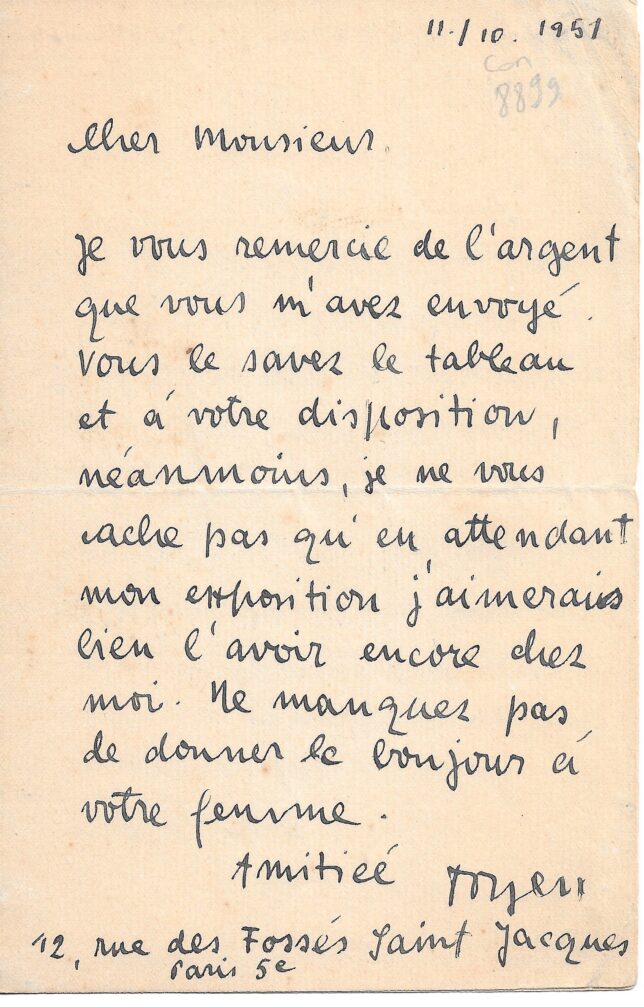 11./10. 1951
con
8899
Cher Monsieur.
Je vous remercie de l'argent
que vous m'avez envoyé.
Vous le savez le tableau
et á votre disposition,
néanmoins, je ne vous
cache pas qu'en attendant
mon exposition j'aimerais
bien l'avoir encore chez
moi. Ne manquez pas
de donner le bonjour á
votre femme.
Amitieé Toyen
12, rue des Fossés Saint Jacques
Paris 5e